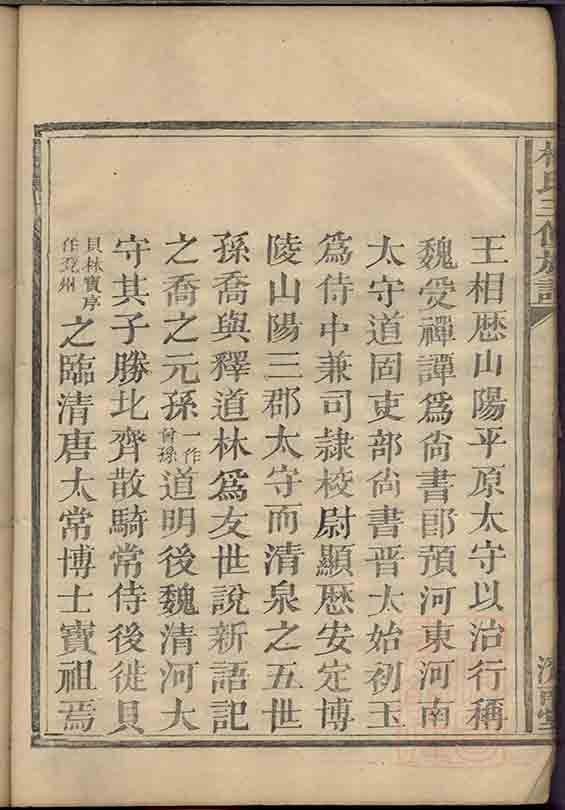 林氏三修族譜
王相歴山陽平原太守以治行稱
魏受禪譚爲尙書郎預河東河南
太守道固吏部尙書晋太始初玉
爲侍中兼司隷校尉顯歴安定博
陵山陽三郡太守而清泉之五世
孫喬與釋道林爲友世說新語記
之喬之元孫一作曾孫道明後魏清河太
守其子勝北齊散騎常侍後徙貝
貝林寶序任兗州之臨清唐太常博士寶祖焉